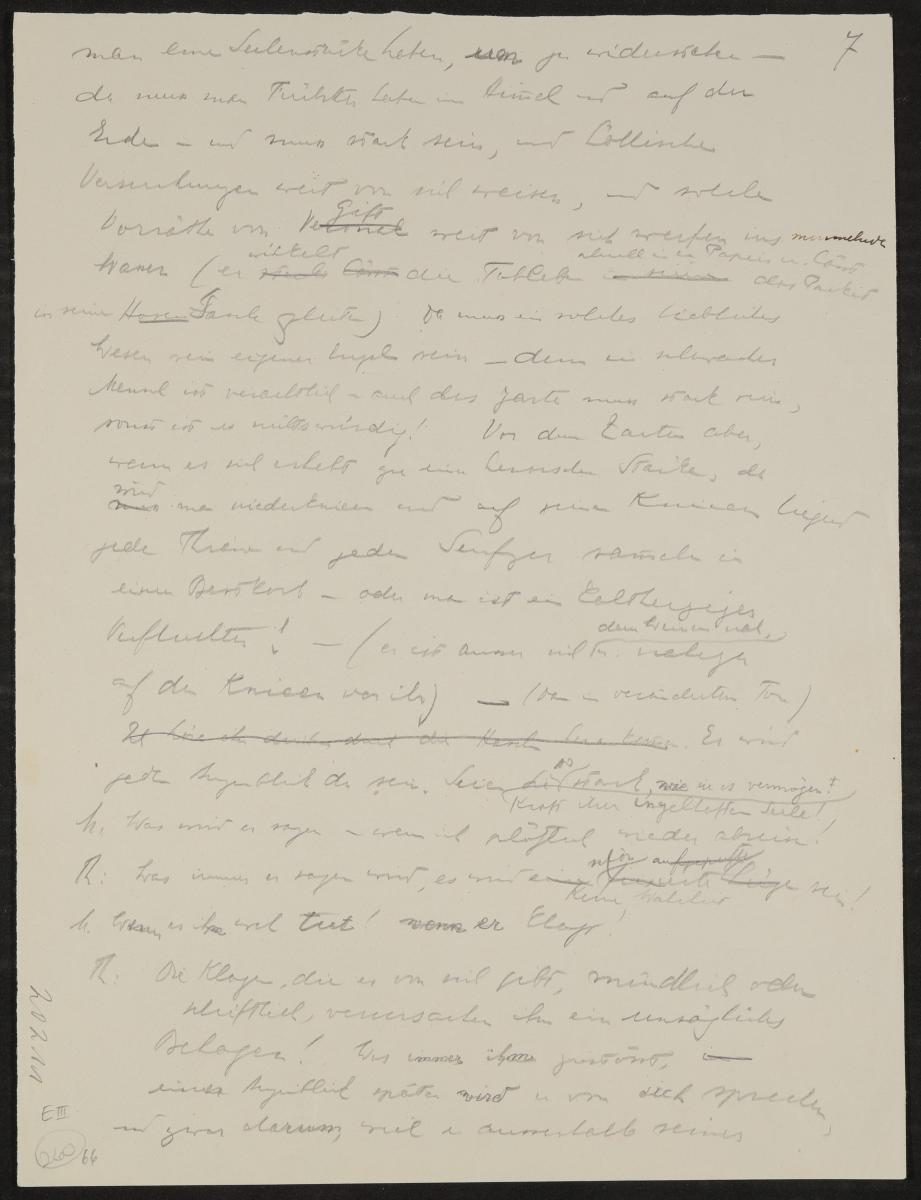 7
man eine Seelenstärke haben, um zu widerstehen —
da muss man Fürbitter haben im Himmel und auf der
Erde – und muss stark sein, und höllische
Versuchungen weit von sich weisen, und solche
Gift
Vorräthe von Veronal weit von sich werfen ins murmelnde
wickelt aktuell in ein Papier u. lässt
Wasser (er die Tabletten das Packet
in seine Hosen Tasche gleiten) Da muss ein solches liebliches
Wesen sein eigener Engel sein — denn ein schwacher
Mensch ist verächtlich – auch das Zarte muss stark sein,
sonst ist es nichtswürdig! Vor dem Zarten aber,
wenn es sich erhebt zu einer heroischen Stärke, da
wird
muss man niederknieen und auf seinen Knieen liegend
jede Thräne und jeden Seufzer sammeln in
einen Brotkorb – oder man ist ein kaltherziges
dem Weinen nah,
Verfluchter! — (er ist ausser sich vor
auf den Knieen vor ihr) — (Dann in verändertem Ton)
Es wird
jeden Augenblick da sein. Seien Sie so stark, wie sie es vermögen!
Kraft Ihrer Seele!
M. Was wird er sagen – wenn ich plötzlich wieder abreise!
schön
R: Was immer er sagen wird, es wird eine Lüge sein!
Keine Wahrheit
M. Wenn es ihm weh tut! wenn er klagt!
R: Die Klagen, die er von sich gibt, mündlich oder
schriftlich, verursachen ihm ein unsägliches
Behagen! Was immer ihm zustösst,
einen Augenblick später wird er von sich sprechen,
und zwar darum, weil er ausserhalb seines
20211
E III
260
66